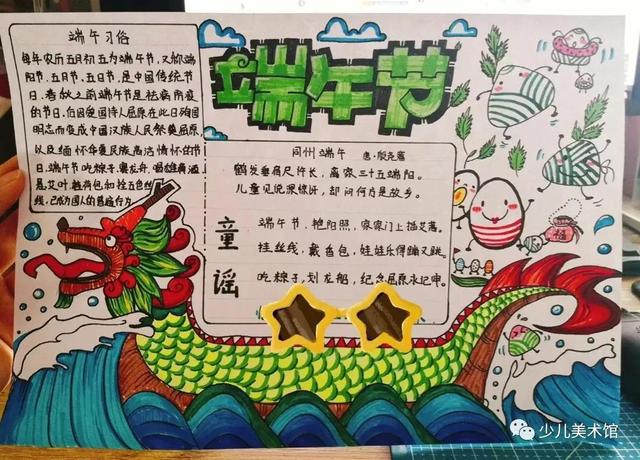 端午节
端午习俗
每年农历五月初五为端午节,又称端
阳节、五月节、五日节,是中国传统节
日。春秋之前端午节是祛病防疫
的节日,后因爱国诗人屈原在此日殉国
明志而变成中国汉族人民祭奠屈原
以及缅怀华夏民族高洁情怀的节
日。端午节吃粽子,赛龙舟,喝雄黄酒
悬艾叶,
线,
同州端午 唐·殷尧藩
鹤发垂肩尺许长,离家三十五端阳。
儿童见说深惊讶,却问何方是故乡。
童谣
端午节,艳阳照,家家门上插艾蒿。
挂丝线,戴香包,娃娃乐得蹦又跳。
吃粽子,划龙船,纪念屈原永记
福
少儿美术馆